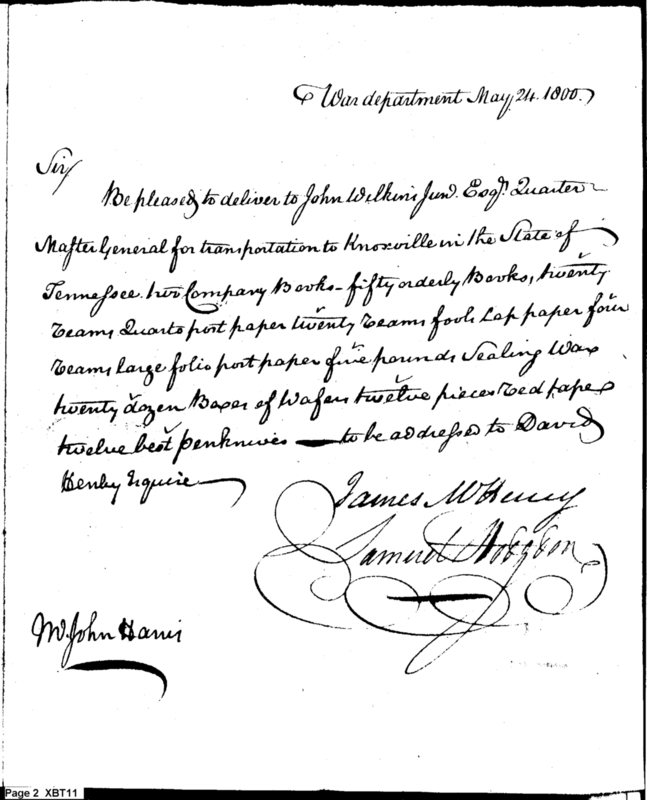 War department May, 24. 1800.
Sir
Be pleased to deliver to John Wilkins Junr. Esqr. Quarter
Master General for transportation to Knoxville in the State of
Tennessee. two Company Books - fifty orderly Books, twenty
Reams Quarto post paper twenty Reams fools Cap paper four
Reams large folio post paper five pounds Sealing Wax
twenty dozen Boxes of Wafers twelve pieces Red tape
twelve best penknives — to be addressed to David
Henley Esquire
James McHenry
Samuel Hodgdon
Mr. John Harris
Page 2 XBT11